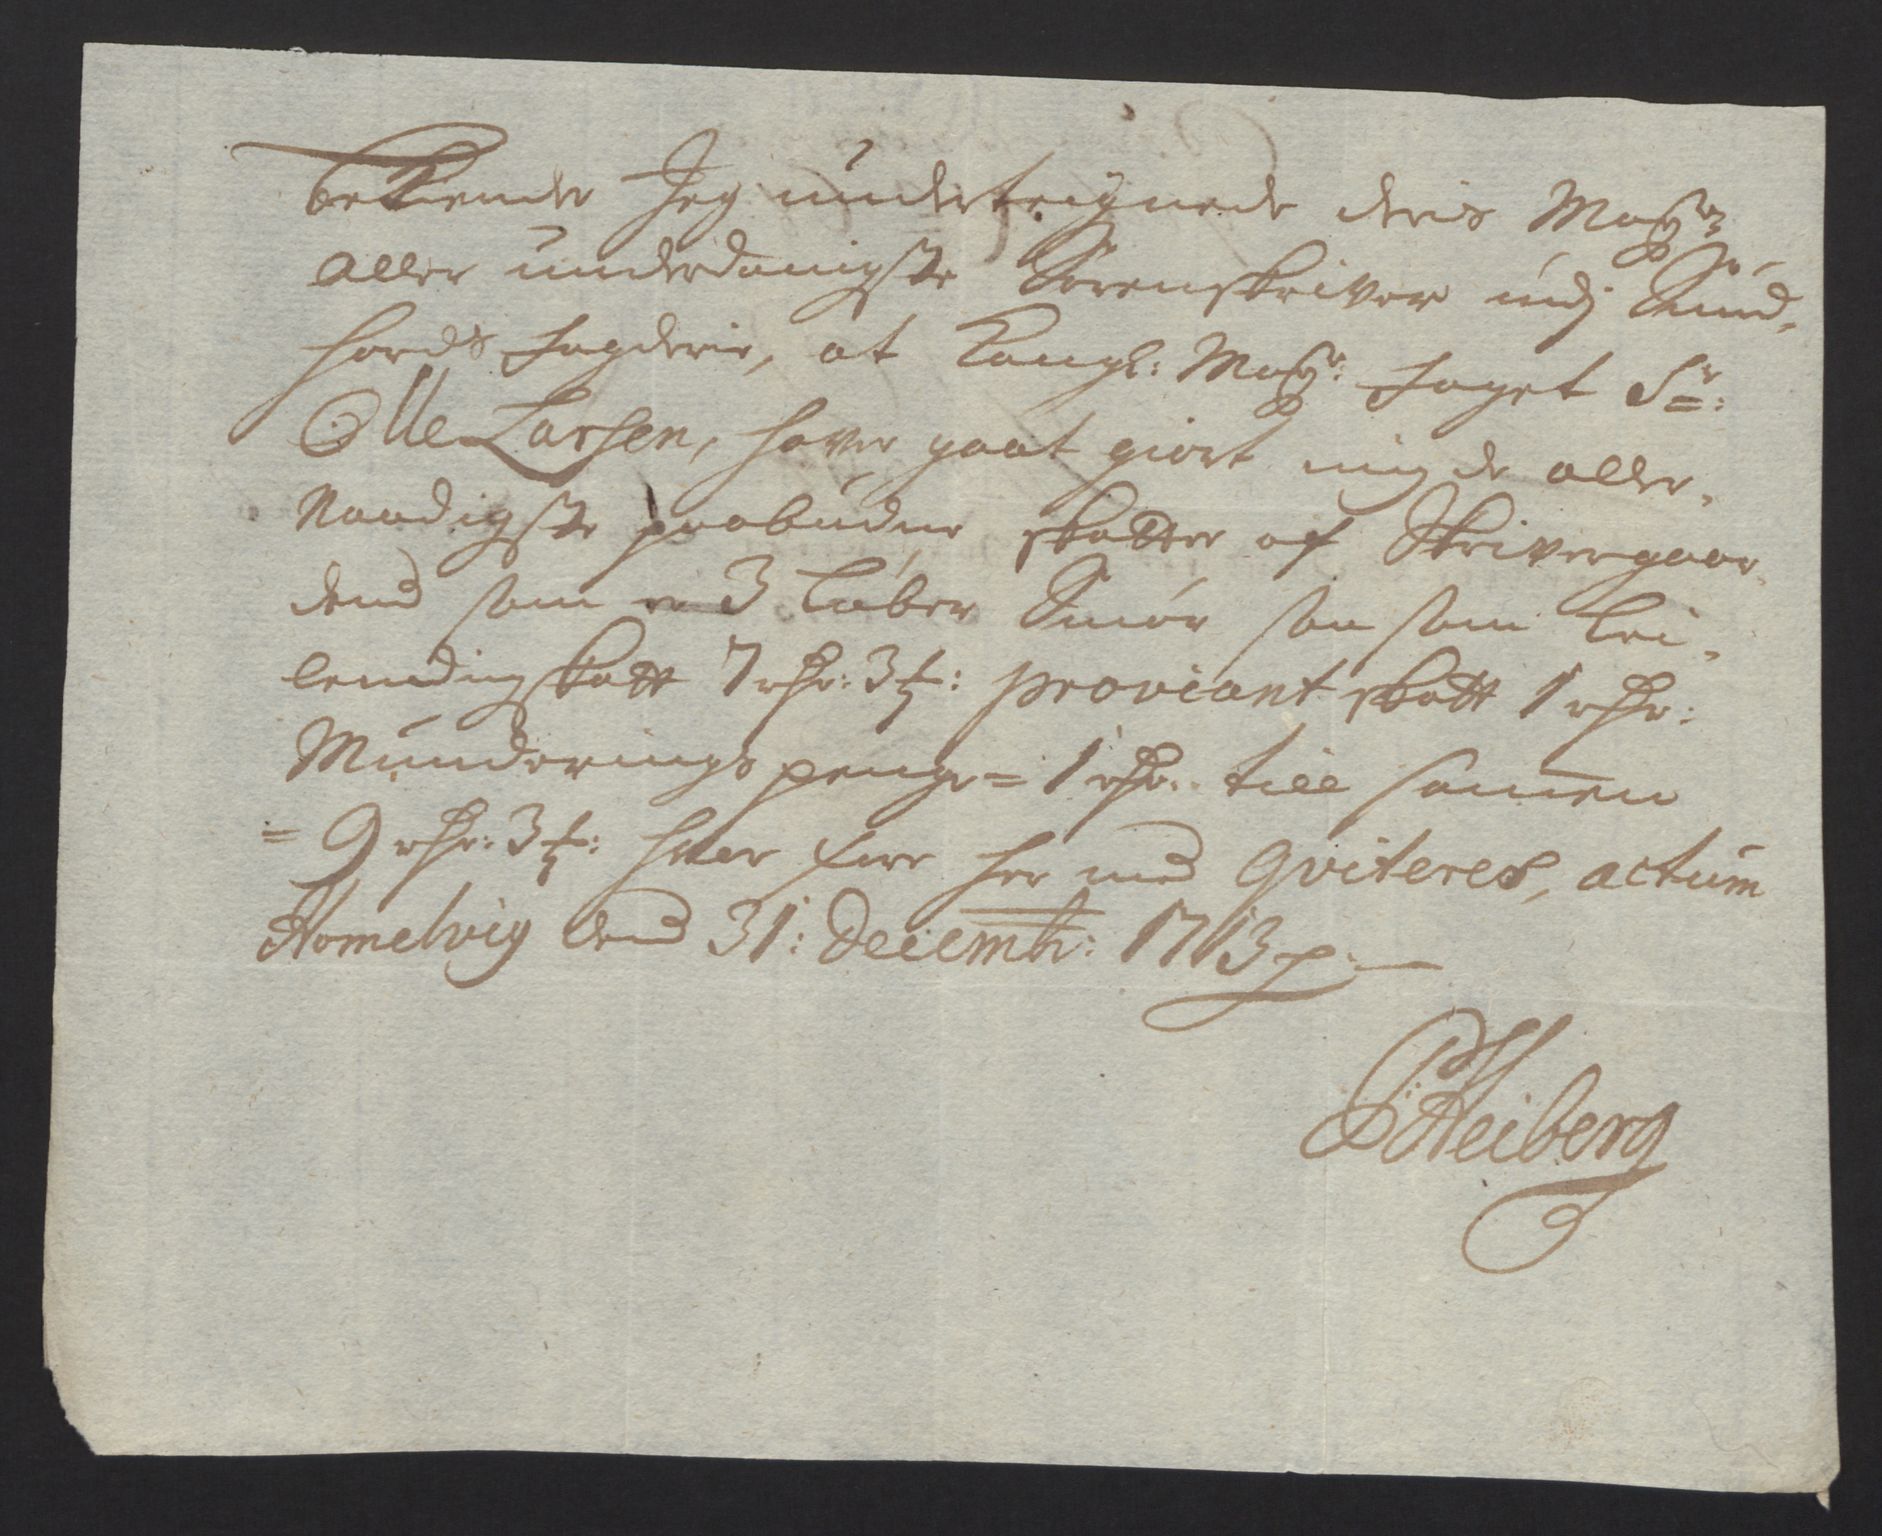 bekiender Jeg underteignede deris Mayts
aller underdanigste Sorenskriver udj Sund,
hords fogderie, at Kongl: Mayts: foget Sr:
Olle Larsen, haver goet giort mig de aller,
Naadigste paabudne skatter af Skrivergaar,
dend som er 3 Løber Smør saa som Lei,
lendingskatt 7 rdr: 3 ʒ: proviant skatt 1 rdr:
Munderings penge = 1 rdr: till samen
= 9 rdr: 3 ʒ: hvor fore her med qviteres, actum
Homelvig dend 31: Decembr: 1713
P Heiberg